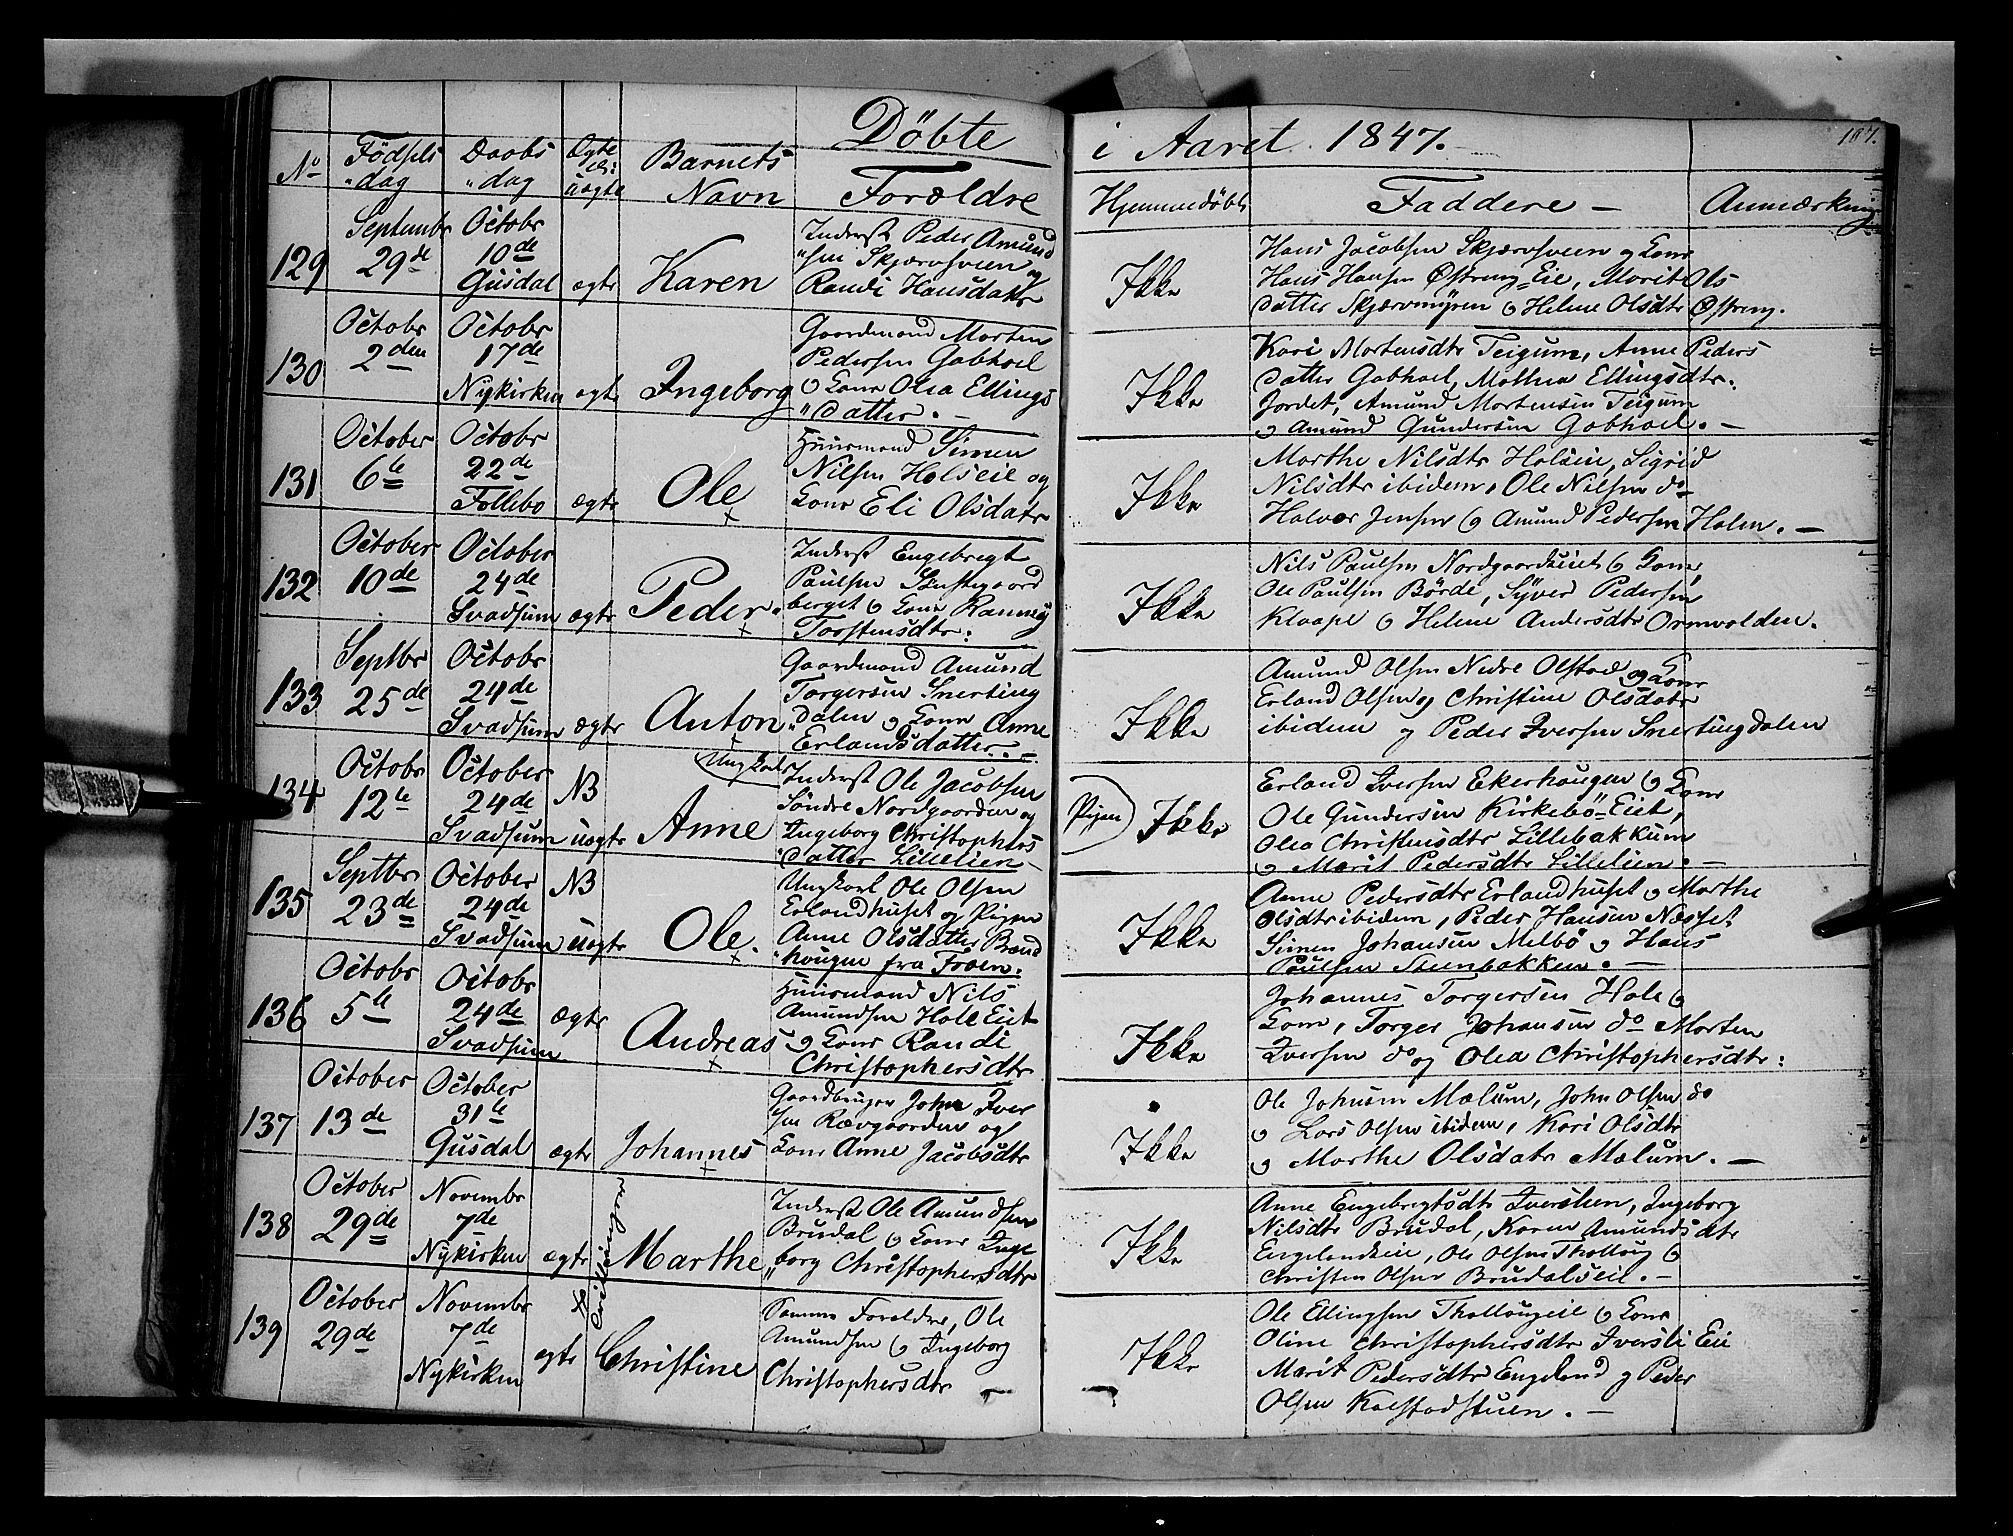 Döbte i Aaret 1847.
187.
No Födsels dag Daabs dag Ægte el: uægte Barnets Navn Forældre Hjemmedöbt Faddere Anmærkning
129 Septembr 29de Octobr 10de Gusdal ægte Karen
Inderst Peder Amund
sen Skjærvsveen og
Randi Hansdatr
Ikke
Hans Jacobsen Skjærvsveen og Kone
Hans Hansen Østreng Eie, Marit Ols
datter Skjærvmyren og Helene Olsdtr Østreng.
130 Octobr 2den Octobr 17de Nykirken ægte Ingeborg
Gaardmand Morten
Pedersen Gobhoel
og Kone Olea Ellings
datter.
Ikke
Kari Mortensdtr Teigum, Anne Peders
datter Gobhoel, Mathea Ellingsdtr.
Jordet, Amund Mortensen Teigum
og Amund Gundersen Gobhoel.
131 October 6te Octobr 22de Follebo ægte Ole
Huusmand Simen
Nilsen Holseie og
Kone Eli Olsdatr
Ikke
Marthe Nilsdtr Holseie, Sigrid
Nilsdtr ibidem, Ole Nilsen do
Halvor Jensen og Amund Pedersen Holen.
132 October 10de October 24de Svadsum ægte Peder.
Inderst Engebregt
Paulsen
berget og Kone Rannei
Torstensdtr:
Ikke
Nils Paulsen Nordgaardseiet og Kone,
Ole Paulsen Börde, Syver Pedersen
Klaape og Helene Andersdtr Ormvolden.
133 Septbr 25de Octobr 24de Svadsum ægte Anton
Gaardmand Amund
Torgersen Snerting
dalen og Kone Anne
Erlandsdatter.
Ikke
Amund Olsen Nedre Olstad og Kone
Erland Olsen og Christine Olsdatr
ibidem og Peder Iversen Snertingdalen
134 Octobr 12te October 24de Svadsum NB uægte Anne
Ungkarl
Inderst Ole Jacobsen
Söndre Nordgaarden og
Ingeborg Christophers
datter Lillelien
Pigen
Ikke
Erland Iversen Ekerhaugen og Kone
Ole Gundersen Kirkebö Eiet,
Olea Christensdtr Lillebakkum
og Marit Pedersdtr Lillelien.
135 Septbr 23de October 24de Svadsum NB uægte Ole.
Ungkarl Ole Olsen
Erlandhuset og Pigen
Anne Olsdatter Brænd
hougen fra Froen.
Ikke
Anne Pedersdtr Erlandhuset og Marthe
Olsdtr ibidem, Peder Hansen Næsset
Simen Johansen Melbö og Hans
Paulsen Steenbakken.
136 Octobr 5te Octobr 24de Svadsum ægte Andreas
Huusmand Nils
Amundsen Hole Eiet
og Kone Randi
Christophersdtr
Ikke
Johannes Torgersen Hole og
Kone, Torger Johansen do Morten
Iversen do og Olea Christophersdtr:
137 October 13de October 31te Gusdal ægte Johannes
Gaardbruger John Iver
sen Rævgaarden og
Kone Anne Jacobsdtr
Ikke
Ole Johnsen Mælum, John Olsen do
og Lars Olsen ibidem, Kari Olsdtr
og Marthe Olsdatr Mælum.
138 October 29de Novembr 7de Nykirken ægte Marthe
Tvillinger
Inderst Ole Amundsen
Brudal og Kone Inge
borg Christophersdtr
Ikke
Anne Engebregtsdtr Iverslien, Ingeborg
Nilsdtr Brudal, Karen Amundsdtr
Engelandseie, Ole Olsen Thollöug og
Christen Olsen Brudalseie.
139 October 29de Novembr 7de Nykirken ægte Christine
Samme Forældre, Ole
Amundsen og Ingeborg
Christophersdtr
Ikke
Ole Ellingsen Thollougeie og Kone
Oline Christophersdtr Iversli Eie
Marit Pedersdtr Engeland og Peder
Olsen Kalstadstuen.